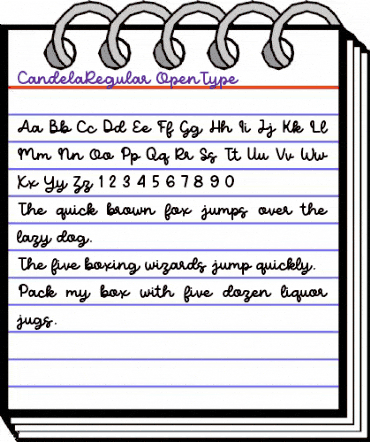 CandelaRegular OpenType
Aa Bb Cc Dd Ee Ff Gg Hh Ii Jj Kk Ll
Mm Nn Oo Pp Qq Rr Ss Tt Uu Vv Ww
Kx Yy Zz 1 2 3 4 5 6 7 8 9 0
The quick brown fox jumps over the
lazy dog.
The five boxing wizards jump quickly.
Pack my box with five dozen liquor
jugs.